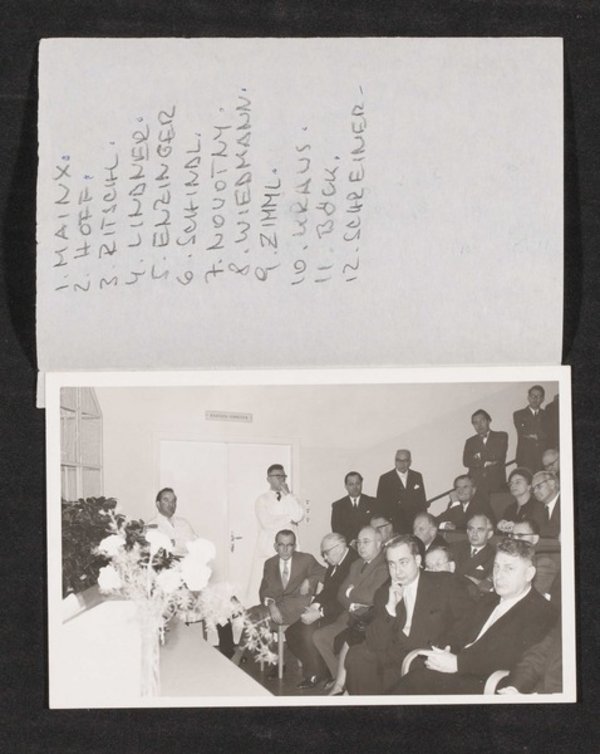 1. MAINX.
2. HOFF.
3. RITSCHL.
4. LINDNER.
5. ENZINGER
6. SCHINDL.
7. NOVOTNY.
8. WIEDMANN.
9. ZIMML.
10. KRAUS.
11. BÖCK.
12. SCHREINER-